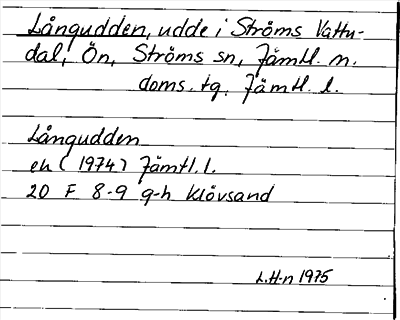 Långudden, udde i Ströms Vattu-
dal, Ön, Ströms sn, Jämtl. n.
doms. tg. Jämtl. l.
Långudden
ek (1974) Jämtl. l.
20 F 8-9 g-h Klövsand
L.H-n 1975